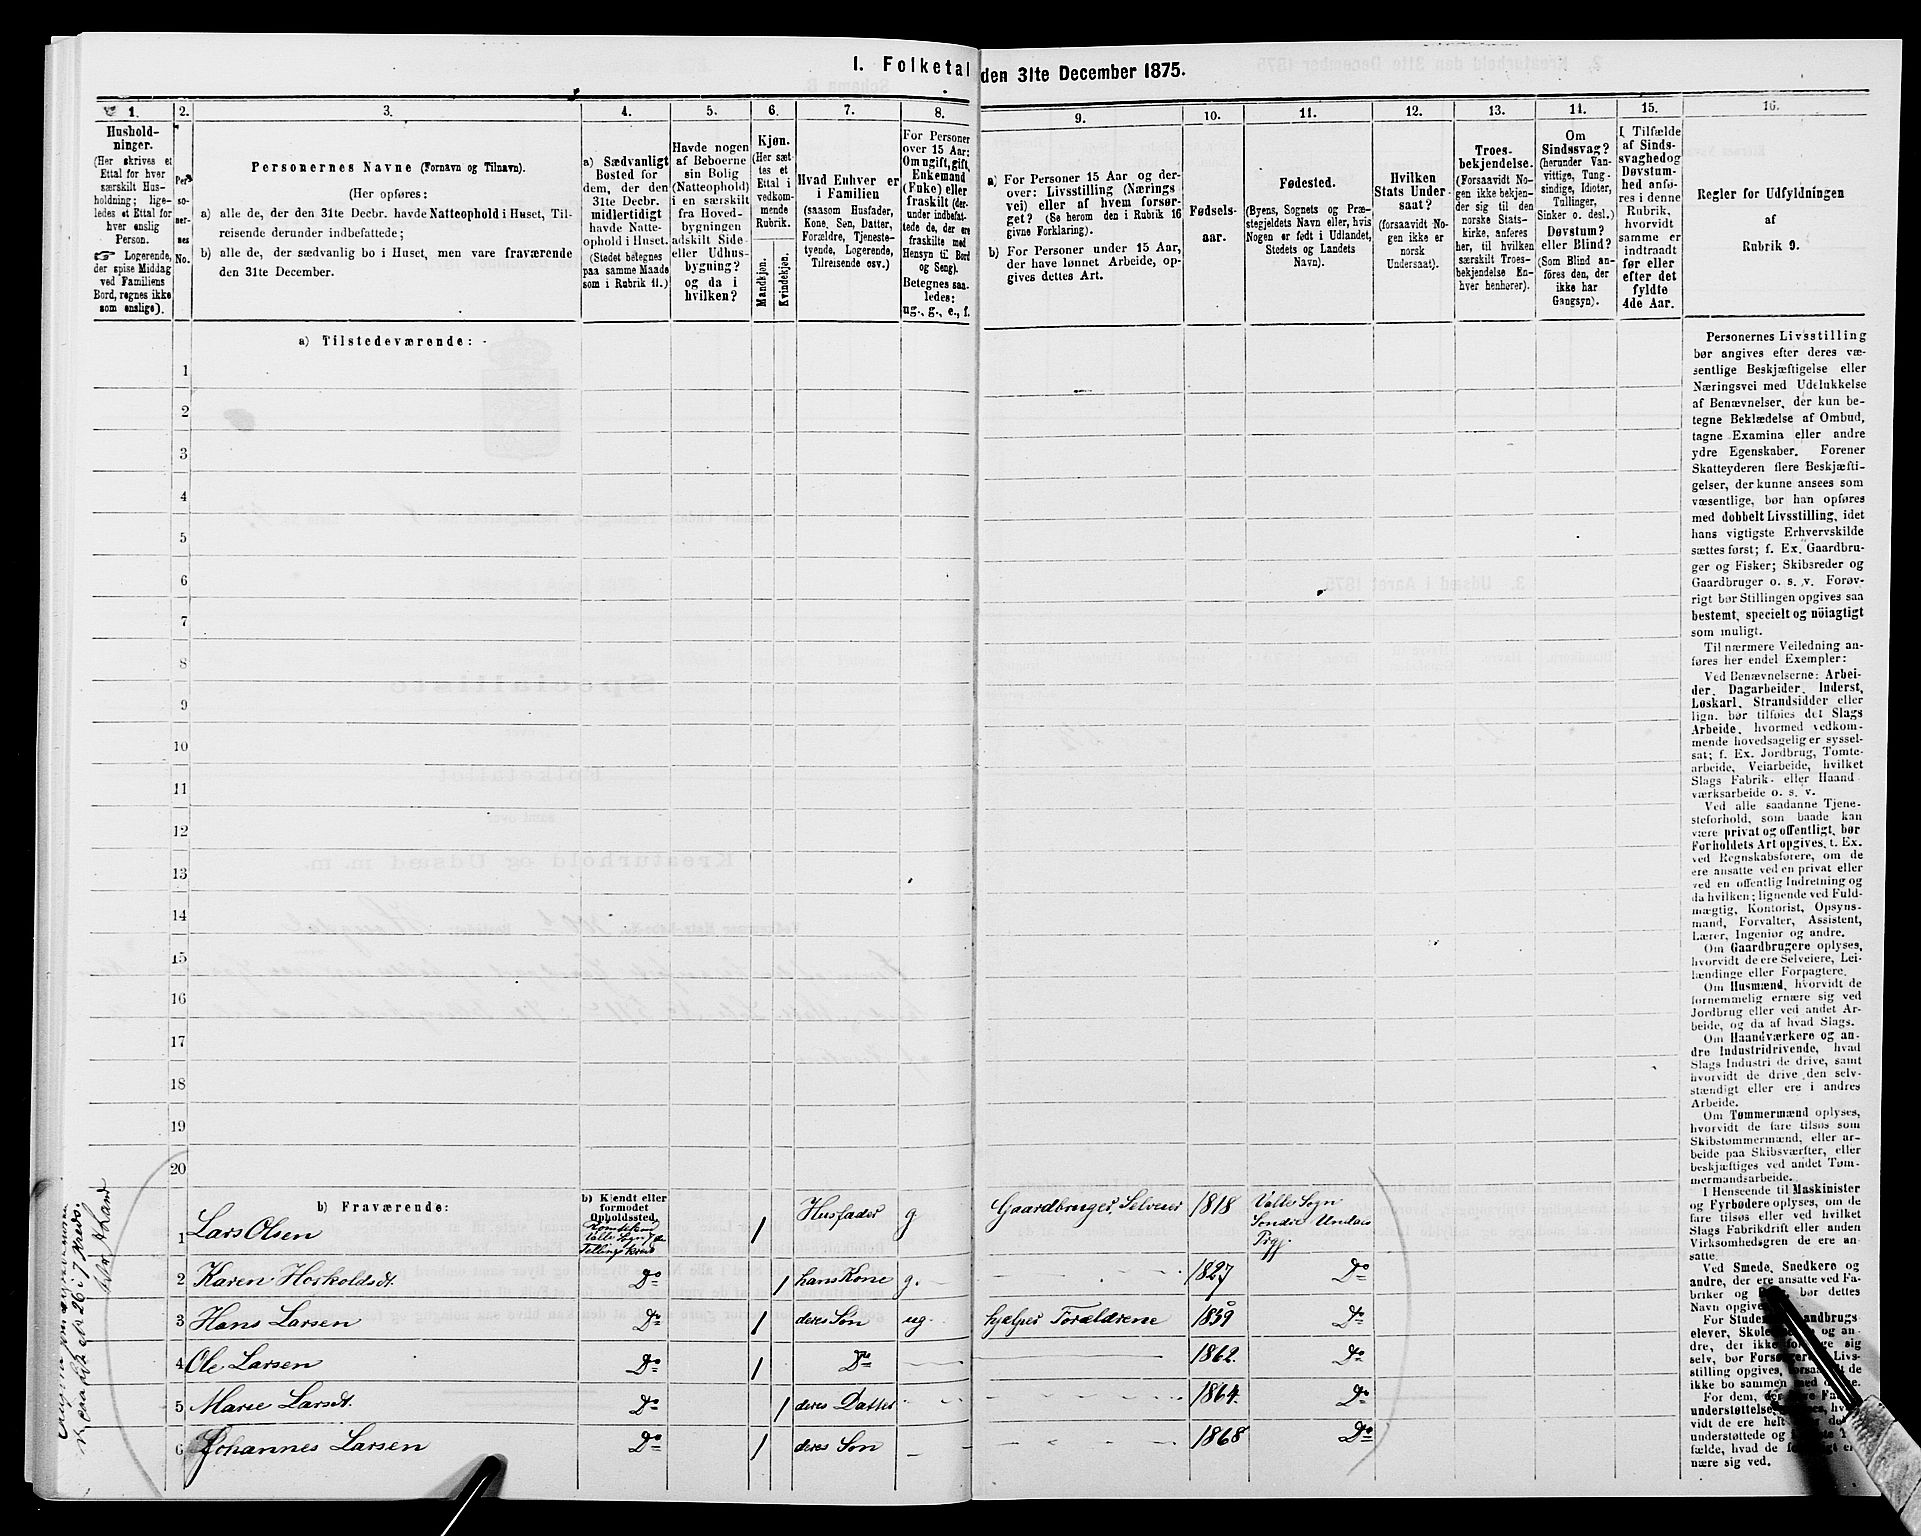 I. Folketal den 31te December 1875.
1.
Hushold-
ninger.
(Her skrives et
Ettal for hver
særskilt Hus-
holdning; lige-
ledes et Ettal for
hver enslig
Person.
☞ Logerende,
der spise Middag
ved Familiens
Bord, regnes ikke
som enslige).
2.
Per
so-
ner-
nes
No.
3.
Personernes Navne (Fornavn og Tilnavn).
(Her opføres:
a) alle de, der den 31te Decbr. havde Natteophold i Huset, Til-
reisende derunder indbefattede;
b) alle de, der sædvanlig bo i Huset, men vare fraværende
den 31te December.
4.
a) Sædvanligt
Bosted for
dem, der den
31te Decbr.
midlertidigt
havde Natte-
ophold i Huset.
(Stedet betegnes
paa samme Maade
som i Rubrik 11.)
5.
Havde nogen
af Beboerne
sin Bolig
(Natteophold)
i en særskilt
fra Hoved-
bygningen
adskilt Side-
eller Udhus-
bygning?
og da i
hvilken?
6.
Kjøn.
(Her sæt-
tes et
Ettal i
vedkom-
mende
Rubrik.
Mandkjøn.
Kvindekjøn.
7.
Hvad Enhver er
i Familien
(saasom Husfader,
Kone, Søn, Datter,
Forældre, Tjeneste-
tyende, Logerende,
Tilreisende osv.)
8.
For Personer
over 15 Aar:
Om ugift, gift,
Enkemand
(Fuke) eller
fraskilt (der-
under indbefat-
tede de, der ere
fraskilte med
Hensyn til Bord
og Seng).
Betegnes saa-
ledes:
ug., g., e., f.
9.
a) For Personer 15 Aar og der-
over: Livsstilling (Nærings
vei) eller af hvem forsør-
get? (Se herom den i Rubrik 16
givne Forklaring).
b) For Personer under 15 Aar,
der have lønnet Arbeide, op-
gives dettes Art.
10.
Fødsels-
aar.
11.
Fødested.
(Byens, Sognets og Præ-
stegjeldets Navn eller, hvis
Nogen er født i Udlandet,
Stedets og Landets
Navn).
12.
Hvilken
Stats Under-
saat?
(forsaavidt No-
gen ikke er
norsk
Undersaat).
13.
Troes-
bekjendelse.
(Forsaavidt No-
gen ikke bekjen-
der sig til den
norske Stats-
kirke, anføres
her, til hvilken
særskilt Troes-
bekjendelse En-
hver henhører).
14.
Om
Sindssvag?
(herunder Van-
vittige, Tung-
sindige, Idioter,
Tullinger,
Sinker o. desl.)
Døvstum?
eller Blind?
(Som Blind an-
føres den, der
ikke har
Gangsyn).
15.
I Tilfælde
af Sinds-
svaghed og
Døvstum-
hed anfø-
res i denne
Rubrik,
hvorvidt
samme er
indtraadt
før eller
efter det
fyldte
4de Aar.
16.
Regler for Udfyldningen
af
Rubrik 9.
a) Tilstedeværende:
1
2
3
4
5
6
7
8
9
10
11
12
13
14
15
16
17
18
19
20
b) Fraværende:
b) Kjendt eller
formodet
Opholdssted.
1 Lars Olsen Valle Sogn 1 Husfader g Gaardbruger, Selveier 1818 Valle Sogn
Søndre Undals
Prgj.
2 Karen Horkoldsdt. Do 1 hans Kone g. 1827 Do
3 Hans Larsen Do 1 deres Søn ug. hjælper Forældrene 1859 Do
4 Ole Larsen Do 1 Do 1862. Do
5 Marie Larsdt. Do 1 deres Datter 1864. Do
6 Johannes Larsen Do 1 deres Søn 1868 Do
Personernes Livsstilling
bør angives efter deres væ-
sentlige Beskjæftigelse eller
Næringsvei med Udelukkelse
af Benævnelser, der kun be-
tegne Beklædelse af Ombud,
tagne Examina eller andre
ydre Egenskaber. Forener
Skatteyderen flere Beskjæfti-
gelser, der kunne ansees som
væsentlige, bør han opføres
med dobbelt Livsstilling, idet
hans vigtigste Erhvervskilde
sættes først; f. Ex. Gaardbru-
ger og Fisker; Skibsreder og
Gaardbruger o. s. v. Forøv-
rigt bør Stillingen opgives saa
bestemt, specielt og nöiagtigt
som muligt.
Til nærmere Veiledning an-
føres her endel Exempler:
Ved Benævnelserne: Arbei-
der, Dagarbeider, Inderst,
Løskarl, Strandsidder eller
lign. bør tilføies det Slags
Arbeide, hvormed vedkom-
mende hovedsagelig er syssel-
sat; f. Ex. Jordbrug, Tomte-
arbeide, Veiarbeide, hvilket
Slags Fabrik- eller Haand
værksarbeide o. s. v.
Ved alle saadanne Tjene-
steforhold, som baade kan
være privat og offentligt, bør
Forholdets Art opgives, t. Ex.
ved Regnskabsførere, om de
ere ansatte ved en privat eller
ved en offentlig Indretning og
da hvilken; lignende ved Fuld-
mægtig, Kontorist, Opsyns-
mand, Forvalter, Assistent,
Lærer, Ingeniør og andre.
Om Gaardbrugere oplyses,
hvorvidt de ere Selveiere, Lei-
lændinge eller Forpagtere.
Om Husmænd, hvorvidt de
fornemmelig ernære sig ved
Jordbrug eller ved andet Ar-
beide, og da af hvad Slags.
Om Haandværkere og an-
dre Industridrivende, hvad
Slags Industri de drive, samt
hvorvidt de drive den selv-
stændigt eller ere i andres
Arbeide.
Om Tømmermænd oplyses,
hvorvidt de fare tilsøs som
Skibstømmermænd, eller ar-
beide paa Skibsværfter, eller
beskjæftiges ved andet Tøm-
mermandsarbeide.
I Henseende til Maskinister
og Fyrbødere oplyses, om de
fare tilsøs eller ved hvilket
Slags Fabrikdrift eller anden
Virksomhedsgren de ere an-
satte.
Ved Smede, Snedkere og
andre, der ere ansatte ved Fa-
briker og bør dettes
Navn opgives
For andbrugs
elever, og an-
dre, der ikke sig
selv, bør Livs-
stilling opgives, de
ikke bo sammen med
For dem, der
understøttelse hvor-
vidt de ere helt
understøttede og
fælde, hvad de
nære sig ved.